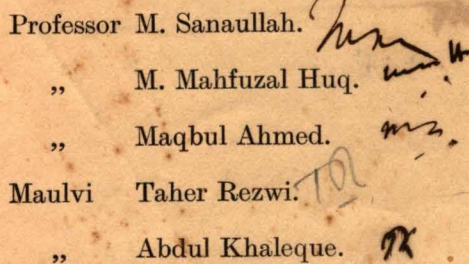 Professor M. Sanaullah.
„ M. Mahfuzal Huq.
„ Maqbul Ahmed.
Maulvi Taher Rezwi.
„ Abdul Khaleque.